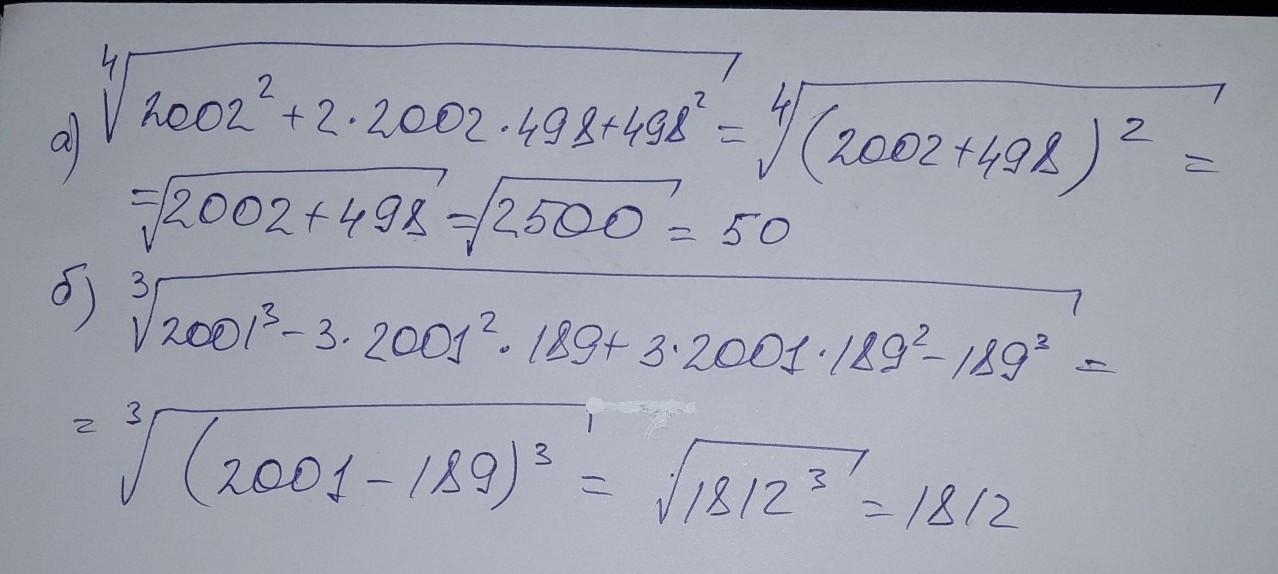 а) ⁴√(2002² + 2·2002·498 + 498²) = ⁴√((2002 + 498)²) =
= √(2002 + 498) = √2500 = 50
б) ³√(2001³ - 3·2001²·189 + 3·2001·189² - 189³) =
= ³√((2001 - 189)³) = √(1812³) = 1812